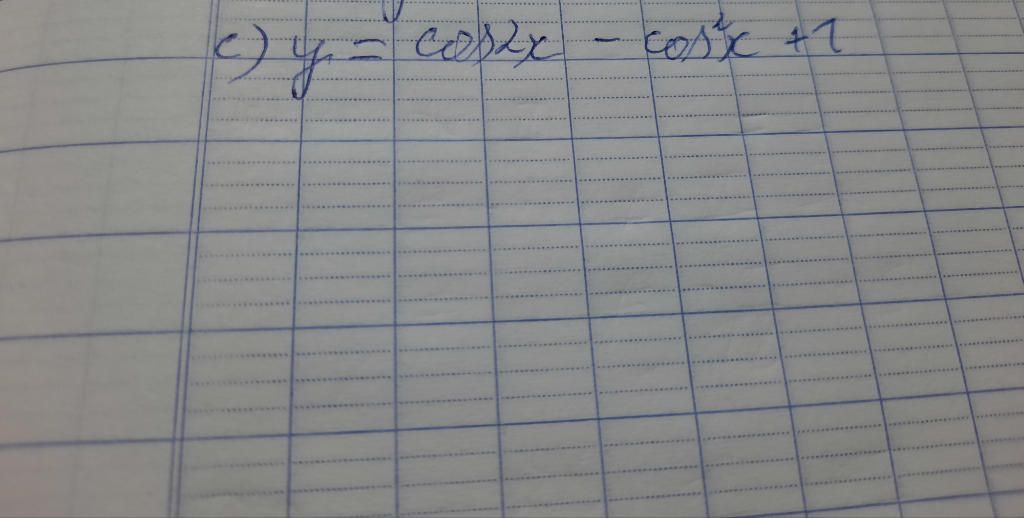 c) y = cos2x - cos²x + 1